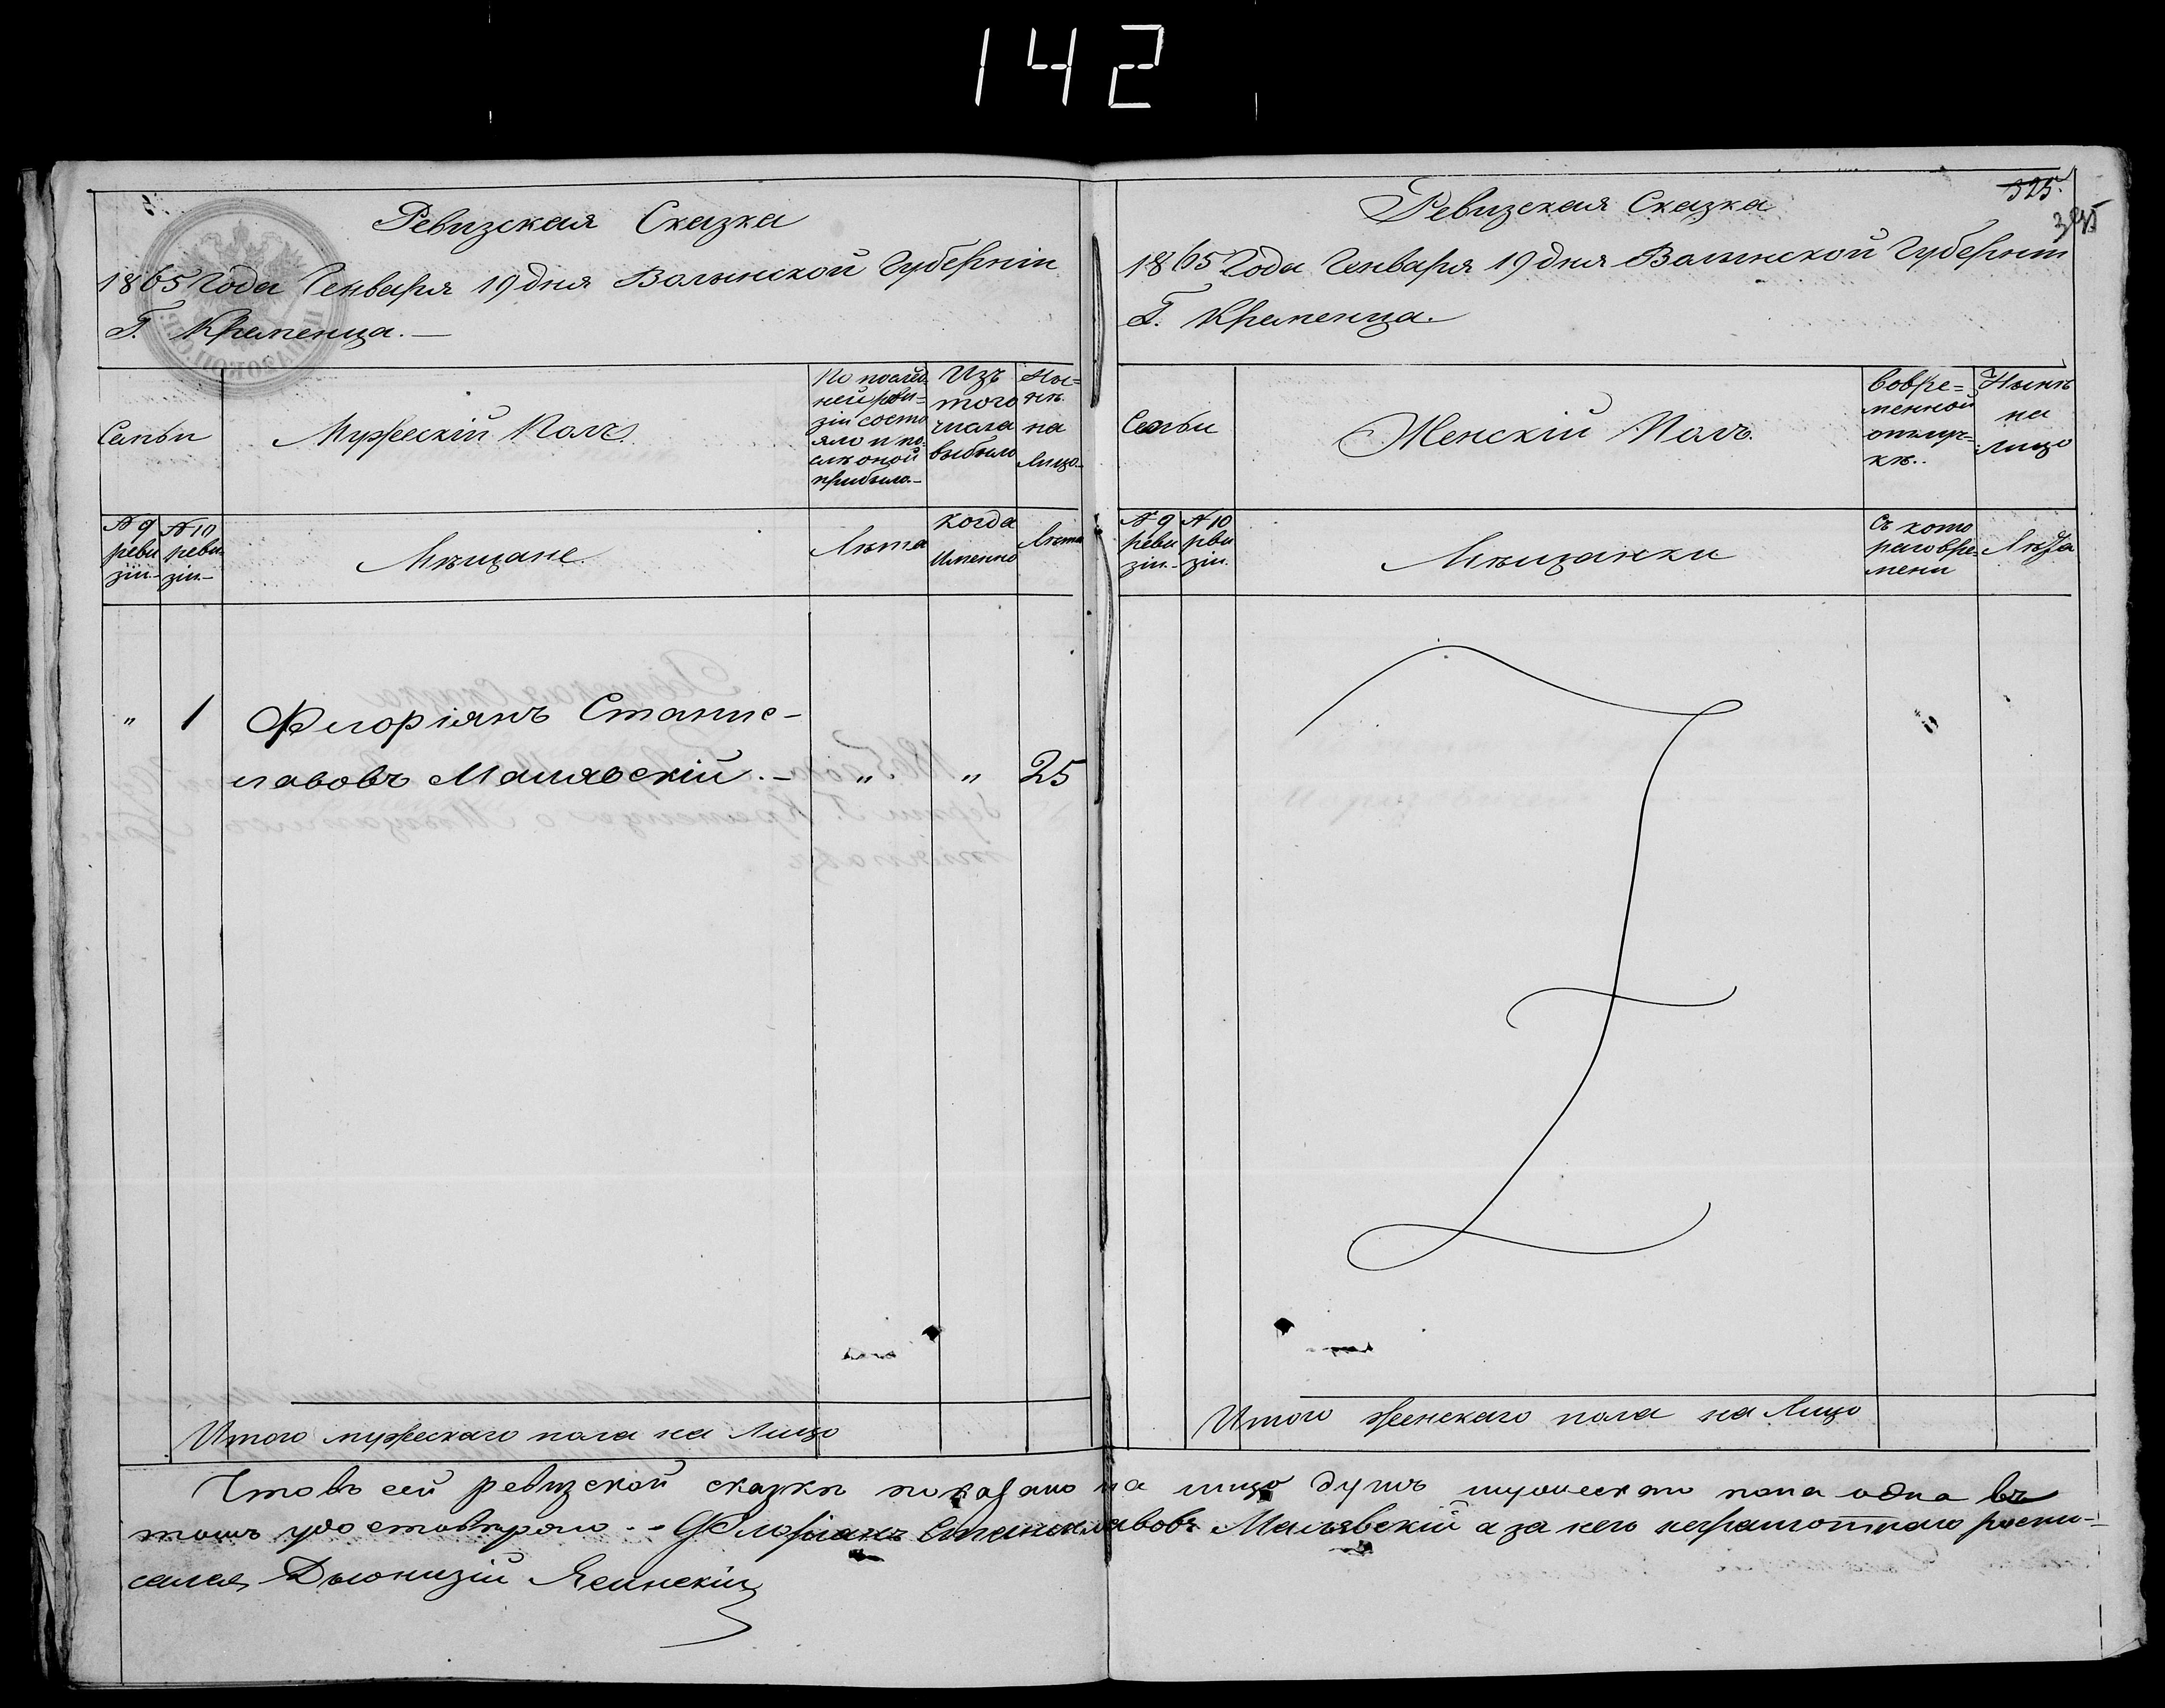 142
Ревизская Сказка
1865 Года Генваря 19 дня Волынской Губерніи
Г. Кременца.—
Семьи
Мужескій Полъ.
По послед
ней реви=
зіи состо
яло и по
слѣ оной
прибыло—
Изъ
того
числа
выбыло
Ны=
нѣ
на
Лицо—
№ 9
реви
зіи—
№ 10
реви
зіи—
Мѣщане.
Лѣта
когда
Именно
Лѣта
" 1 Флоріянъ Станис-
лавовъ Малявскій.— " " 25
Итого мужескаго пола на Лицо
325
Ревизская Сказка
1865 Года Генваря 19 дня Волынской Губерніи
Г. Кременца.
Семьи
Женскій Полъ.
Вовре=
менной
отлуч=
кѣ..
Нынѣ
на
лицо
№ 9
реви
зіи—
№ 10
реви
зіи.
Мѣщанки
съ кото
раго вре
мени
Лѣта
Итого женскаго пола на Лицо
Что въ сей ревизской сказкѣ показано на лицо душъ мужескаго пола одна въ
томъ удостовѣряю.- Флоріанъ Станиславовъ Малявскій а за него неграмотнаго роспи-
сался Дыонизій Ясинскій